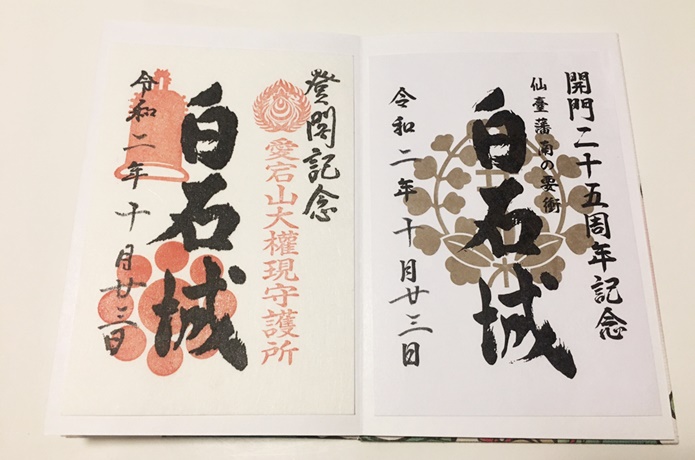 開門二十五周年記念
仙臺藩南の要衝
白石城
令和二年十月廿三日
登閣記念
愛宕山大權現守護所
白石城
令和二年十月廿三日